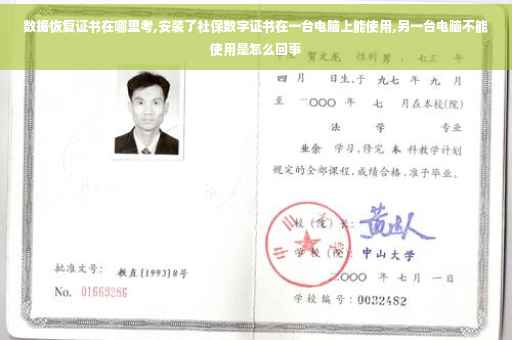 数据恢复证书在哪里考,安装了社保数字证书在一台电脑上能使用,另一台电脑不能
使用是怎么回事
贺文龙 性别 男 , 七三 年
四 月 日生,于 九七 年 九 月
至 二〇〇〇 年 七 月在本校(院)
法 学 专业
业余 学习,修完 本 科教学计划
规定的全部课程,成绩合格,准予毕业。
校(院)长:
学 校(院): 中山大学
批准文号: 教直[1993]8号
二〇〇〇 年 七 月 一 日
No. 01669286
学校编号: 0032482